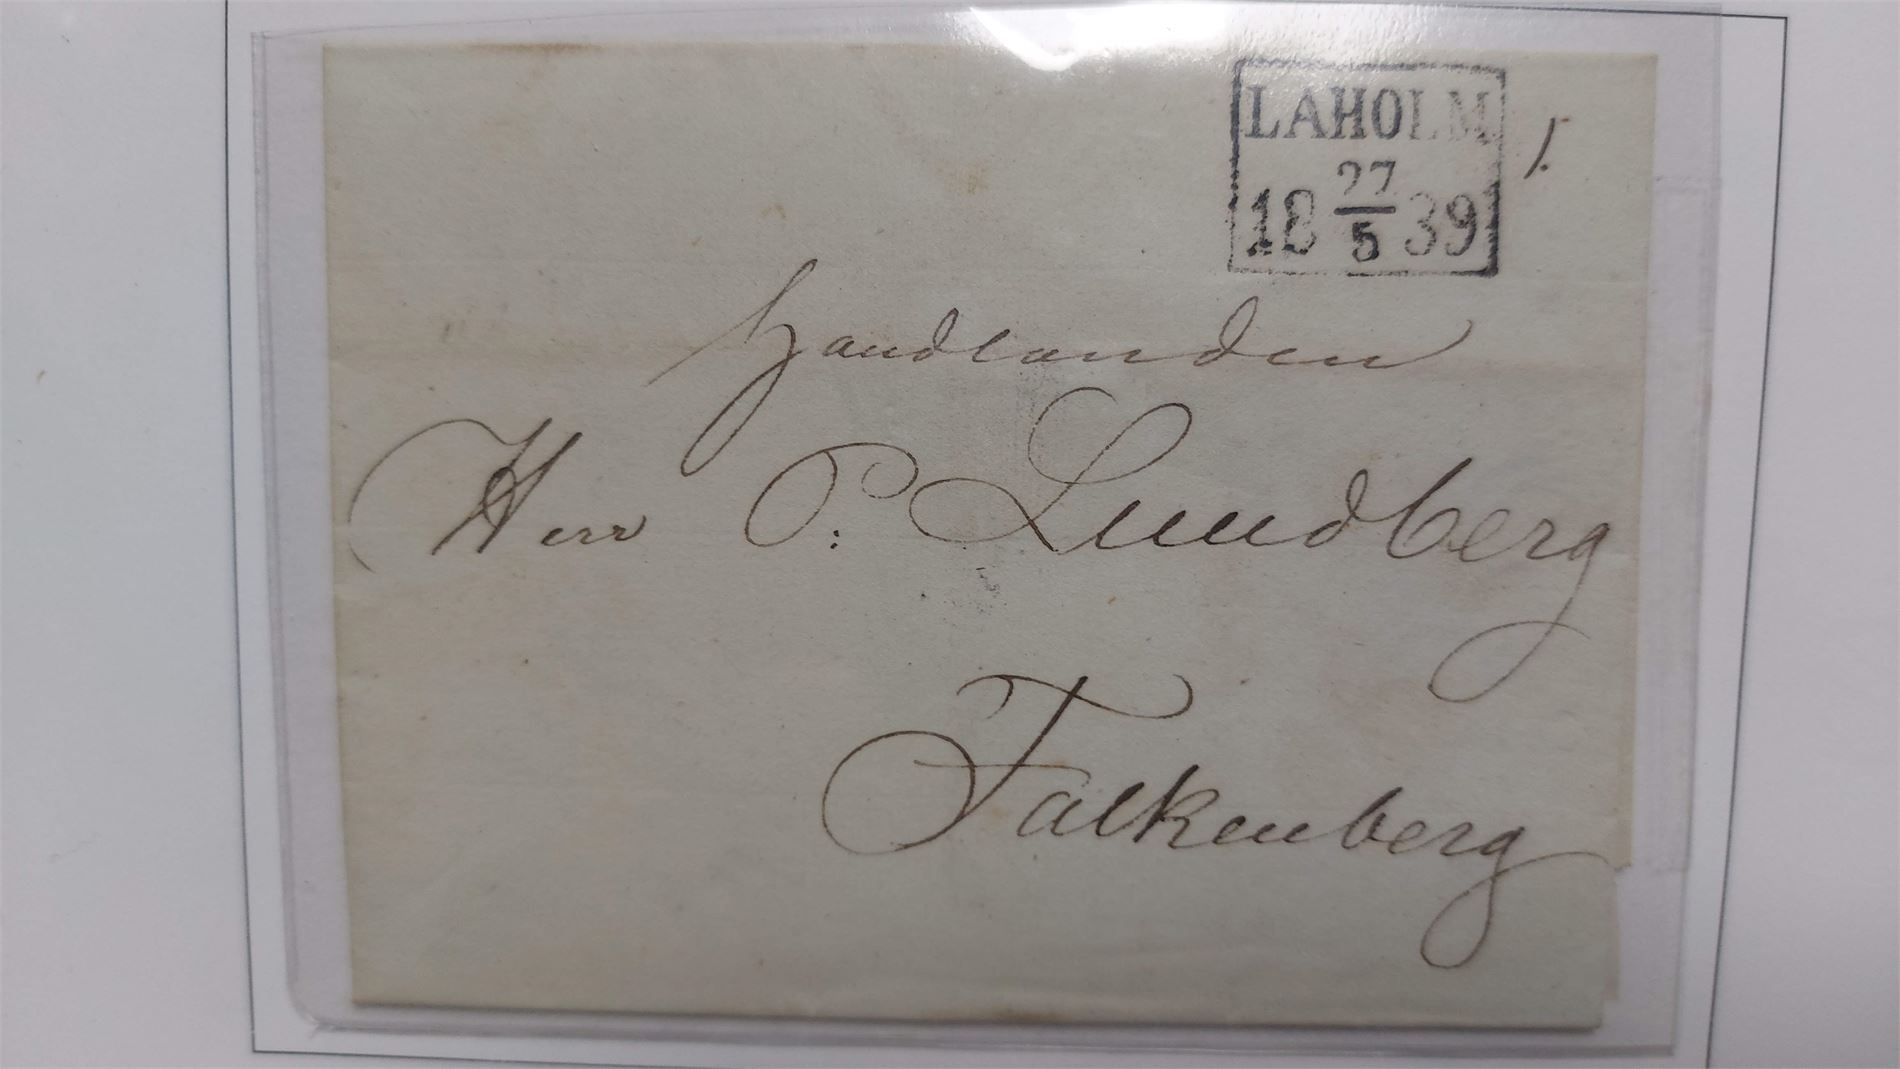 LAHOLM
27
18 5 39
1.
Handlanden
Herr P: Lundberg
Falkenberg